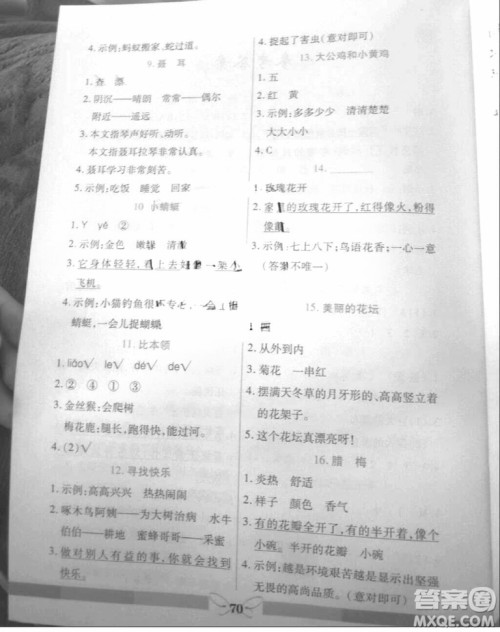 4. 示例:蚂蚁搬家、蛇过道。
9. 聂 耳
1. 查 漂
2. 阴沉——晴朗 常常——偶尔
附近——遥远
3. 本文指琴声好听,动听。
本文指聂耳拉琴非常认真。
4. 聂耳学习非常刻苦。
5. 示例:吃饭 睡觉 回家
10 小蜻蜓
1. Y yé ②
2. 示例:金色 嫩绿 清
3. 它身体轻轻,看上去
飞机。
4. 示例:小猫钓鱼很不专
蜻蜓,一会儿捉蝴蝶。
11. 比本领
1. liǎo√ le√ dé√ de√
2. ② ④ ① ③
3. 金丝猴:会爬树
梅花鹿:腿长,跑得快,能过河。
4. (2)√
12. 寻找快乐
1. 示例:高高兴兴 热热闹闹
2. 啄木鸟阿姨——为大树治病 水牛
伯伯——耕地 蜜蜂哥哥——采蜜
3. 做对别人有益的事,你就会找到
快乐。
4. 捉起了害虫(意对即可)
13. 大公鸡和小黄鸡
1. 五
2. 红 黄
3. 示例:多多少少 清清楚楚
大大小小
4. C
14.
1. 玫瑰花开
2. 家 的玫瑰花开了,红得像火,粉得
像
3. 示例:七上八下;鸟语花香;一心一意
(答案不唯一)
15. 美丽的花坛
1.
2. 从外到内
3. 菊花 一串红
4. 摆满天冬草的月牙形的、高高竖立着
的花架子。
5. 这个花坛真漂亮呀!
16. 腊 梅
1. 炎热 舒适
2. 样子 颜色 香气
3. 有的花瓣全开了,有的半开着,像个
小碗。 半开着的花瓣 小碗
4. 示例:越是环境艰苦越是显示出坚强
无畏的高尚品质。(意对即可)
70
答案圈
MXQE.COM